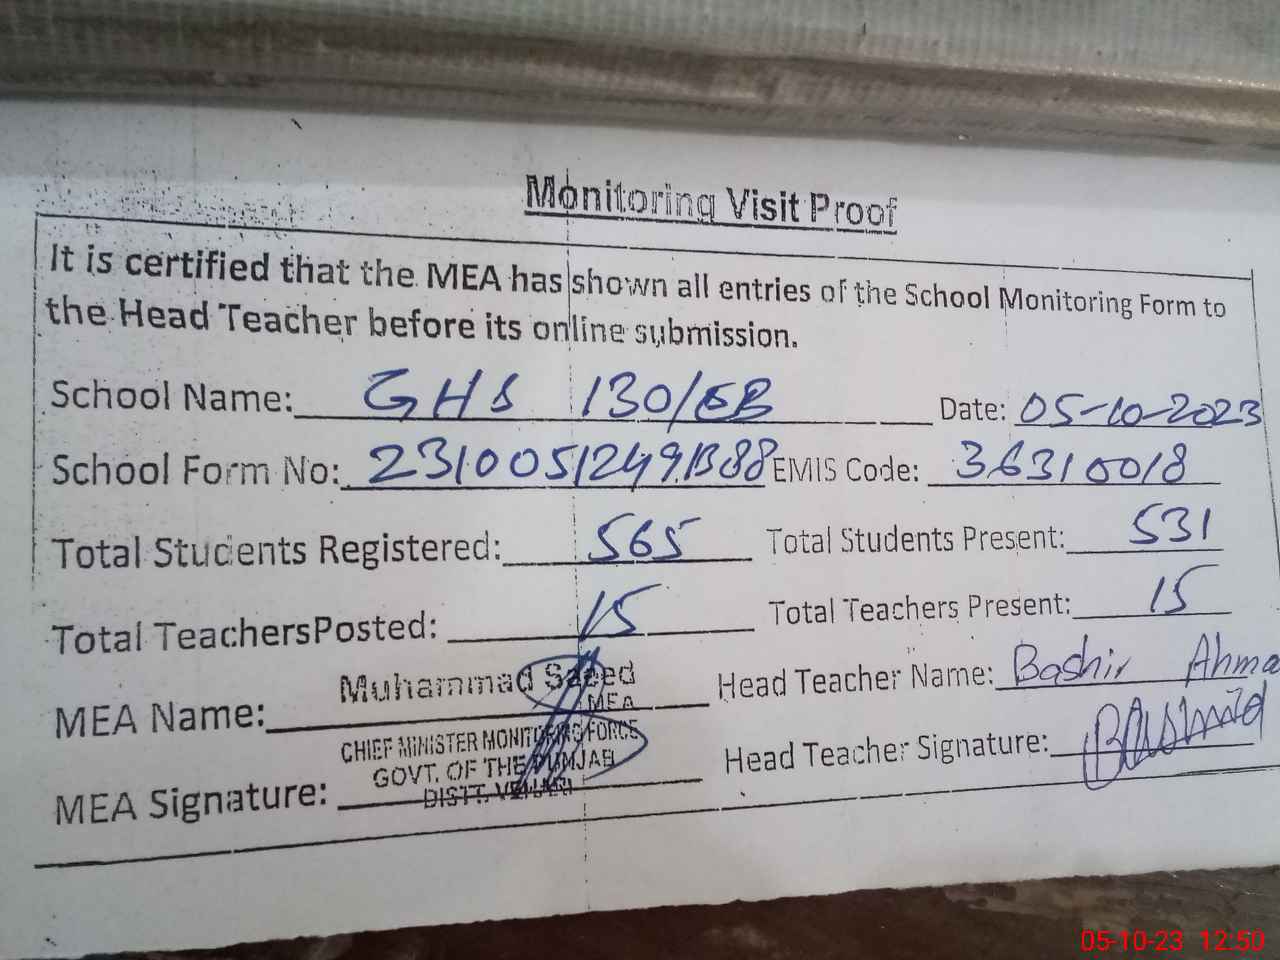 Monitoring Visit Proof
It is certified that the MEA has shown all entries of the School Monitoring Form to
the Head Teacher before its online submission.
School Name: GHS 130/EB Date: 05-10-2023
School Form No: EMIS Code: 36310018
Total Students Registered: 565 Total Students Present: 531
Total TeachersPosted: 15 Total Teachers Present: 15
MEA Name: Muhammad Saeed Head Teacher Name: Bashir Ahma
MEA
CHIEF MINISTER MONITORING FORCE
GOVT. OF THE PUNJAB
DISTT. VEHARI
MEA Signature: Head Teacher Signature:
05-10-23 12:50